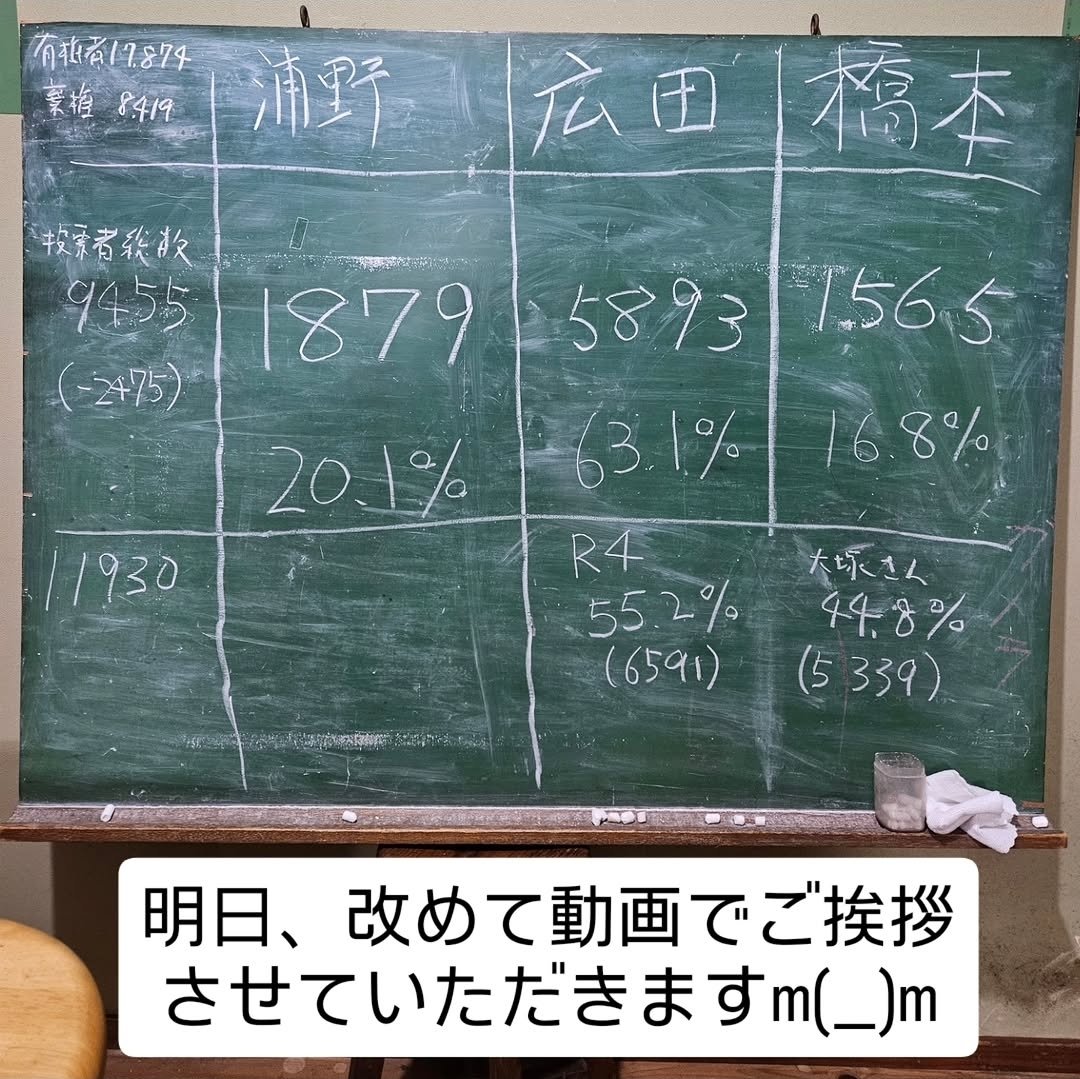 有権者17.874
棄権 8.419
浦野
広田
橋本
投票者総数
9455
(-2475)
1879
5893
1565
20.1%
63.1%
16.8%
11930
R4
55.2%
(6591)
大塚さん
44.8%
(5339)
明日、改めて動画でご挨拶
させていただきますm(_)m